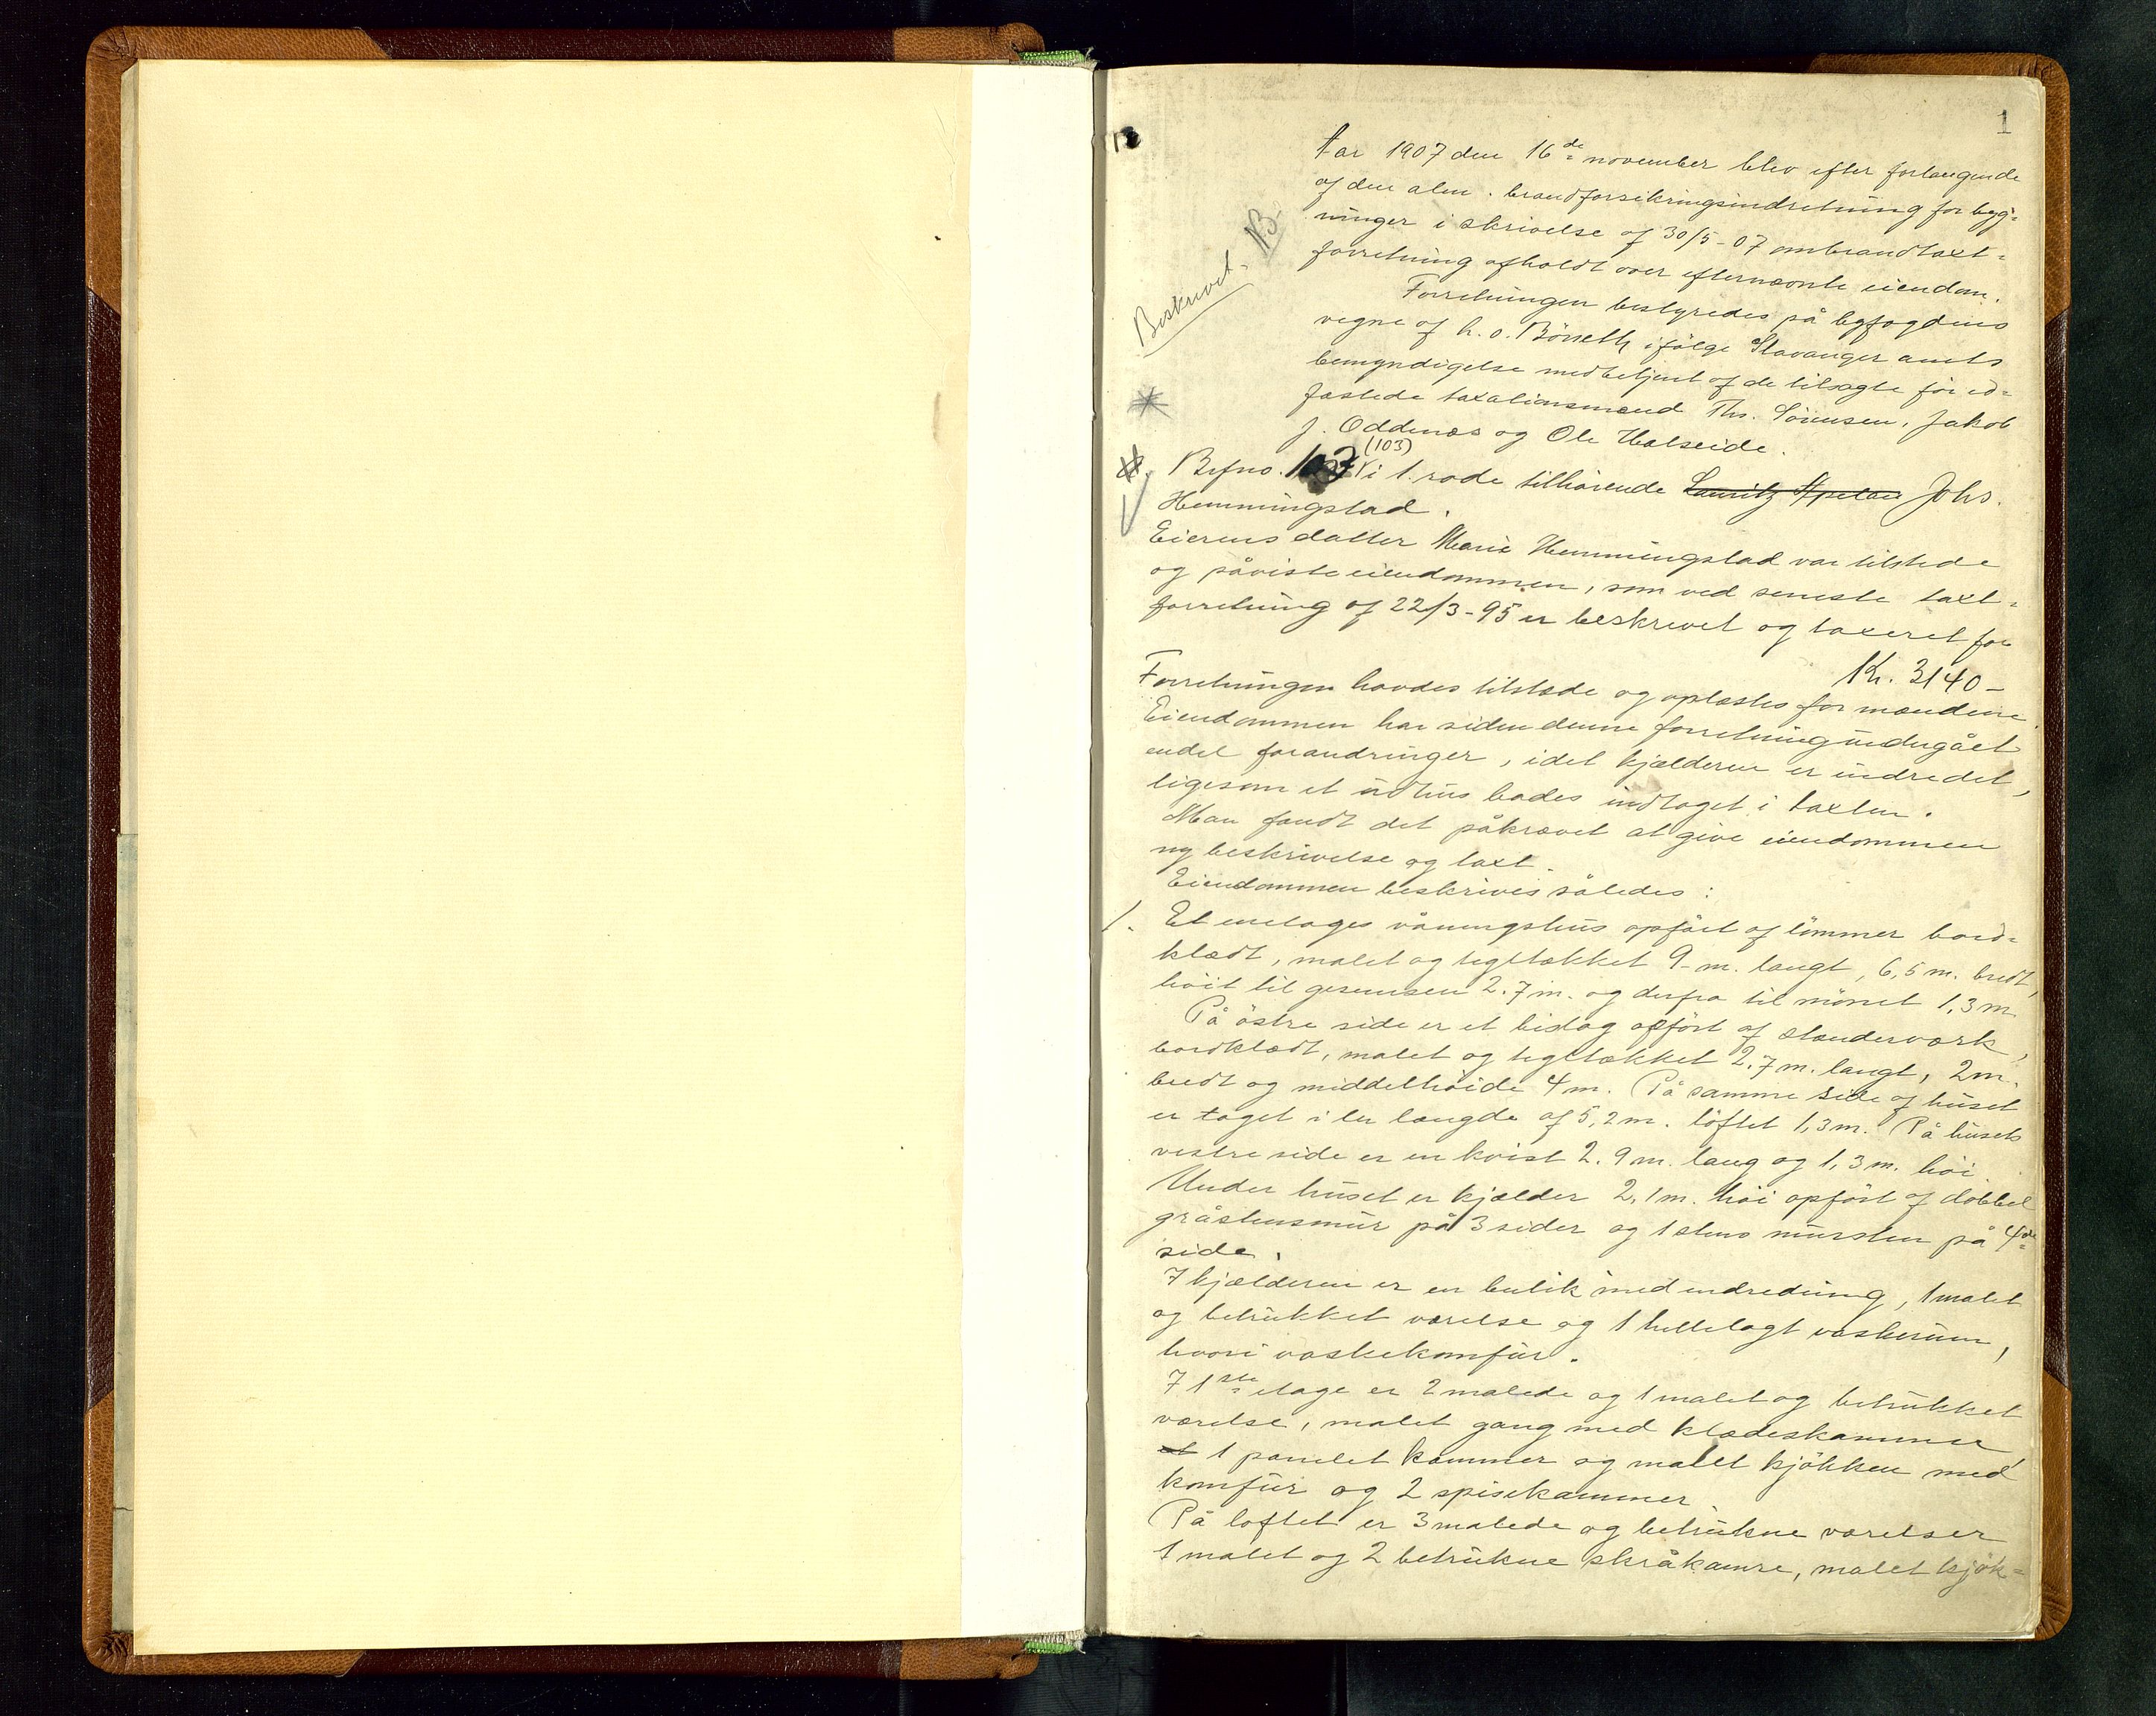 1
Aar 1907 den 16de november blev efter forlangende
af den alm. brandforsikringsindretning for byg=
ninger i skrivelse af 30/5-07 ombrandtaxt=
forretning afholdt over efternævnte eiendom.
Forretningen bestyredes på byfogdens
vegne af h. o. Börseth ifölge Stavanger amts
bemyndigelse medbetjent af de tilsagte för ed=
fæstede taxationsmænd Ths. Sörensen, Jakob
J. Oddenes og Ole Halseide.
Beskrevet. NB.
(103)
Brfno. 103 i 1. rode tilhörende Lauritz Johs.
Hemmingstad.
Eierens datter Marie Hemmingstad var tilstede
og påviste eiendommen, som ved seneste taxt=
forretning af 22/3-95 er beskrevet og taxeret for
Kr. 3140-
Forretningen havdes tilstede og oplæstes for mændene.
Eiendommen har siden denne forretning undergået
endel forandringer, idet kjælderen er indredet,
ligesom et udhus bades indtaget i taxten.
Man fandt det påkrævet at give eiendommen
ny beskrivelse og taxt.
Eiendommen beskrives således:
1. Et enetages våningshus opfört af tömmer bord=
klædt, malet og tegltækket 9-m. langt, 6,5 m. bredt,
höit til gesimsen 2.7 m. og derfra til mönet 1,3 m.
På östre side er et bislag opfört af stænderværk,
bordklædt, malet og tegltækket 2.7 m. langt, 2 m.
bredt og middelhöide 4 m. På samme side af huset
er taget i en længde af 5,2 m. löftet 1,3 m. På husets
vestre side er en kvist 2.9 m. lang og 1,3 m. höi.
Under huset er kjælder 2,1 m. höi opfört af dobbel
gråstensmur på 3 sider og 1 stens mursten på 4de
side.
I kjælderen er en butik med indredning, 1 malet
og betrukket værelse og 1 hellelagt vaskerum,
hvori vaskekomfur.
I 1ste etage er 2 malede og 1 malet og betrukket
værelse, malet gang med klædeskammer,
et 1 panelet kammer og malet kjökken med
komfur og 2 spisekammer.
På loftet er 3 malede og betrukne værelser
1 malet og 2 betrukne skråkamre, malet kjök=